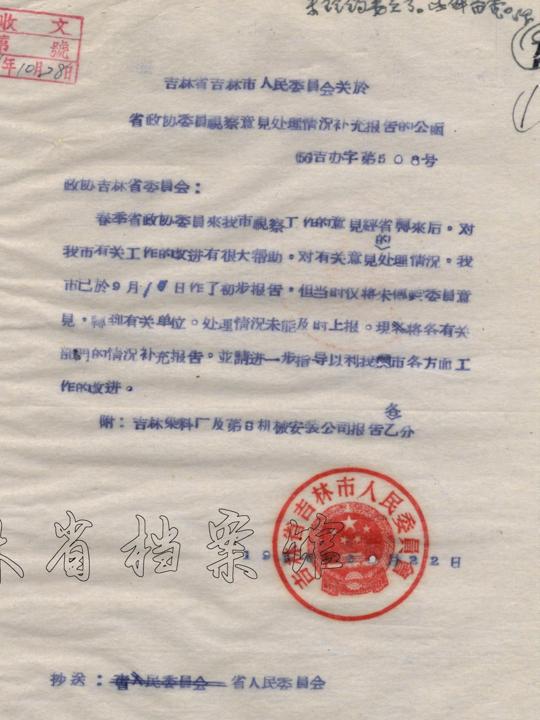 收文
第 號
年10月28日
吉林省吉林市人民委員会关於
省政协委員視察意見处理情况补充报告的公函
(56)吉办字第508号
政协吉林省委員会：
春季省政协委員来我市視察工作的意見經省轉来后。对
我市有关工作的改进有很大帮助。对有关意見的处理情况。我
市已於9月1 日作了初步报告。但当时仅将 委員意
見，轉到有关单位。处理情况未能及时上报。現 将各有关
部門的情况补充报告。並請进一步指导以利我 市各方面工
作的改进。
附：吉林染料厂及第8机械安装公司报告各乙分
吉林省吉林市人民委員會
19 月22日
林省档案馆
抄送：省人民委員会 省人民委員会